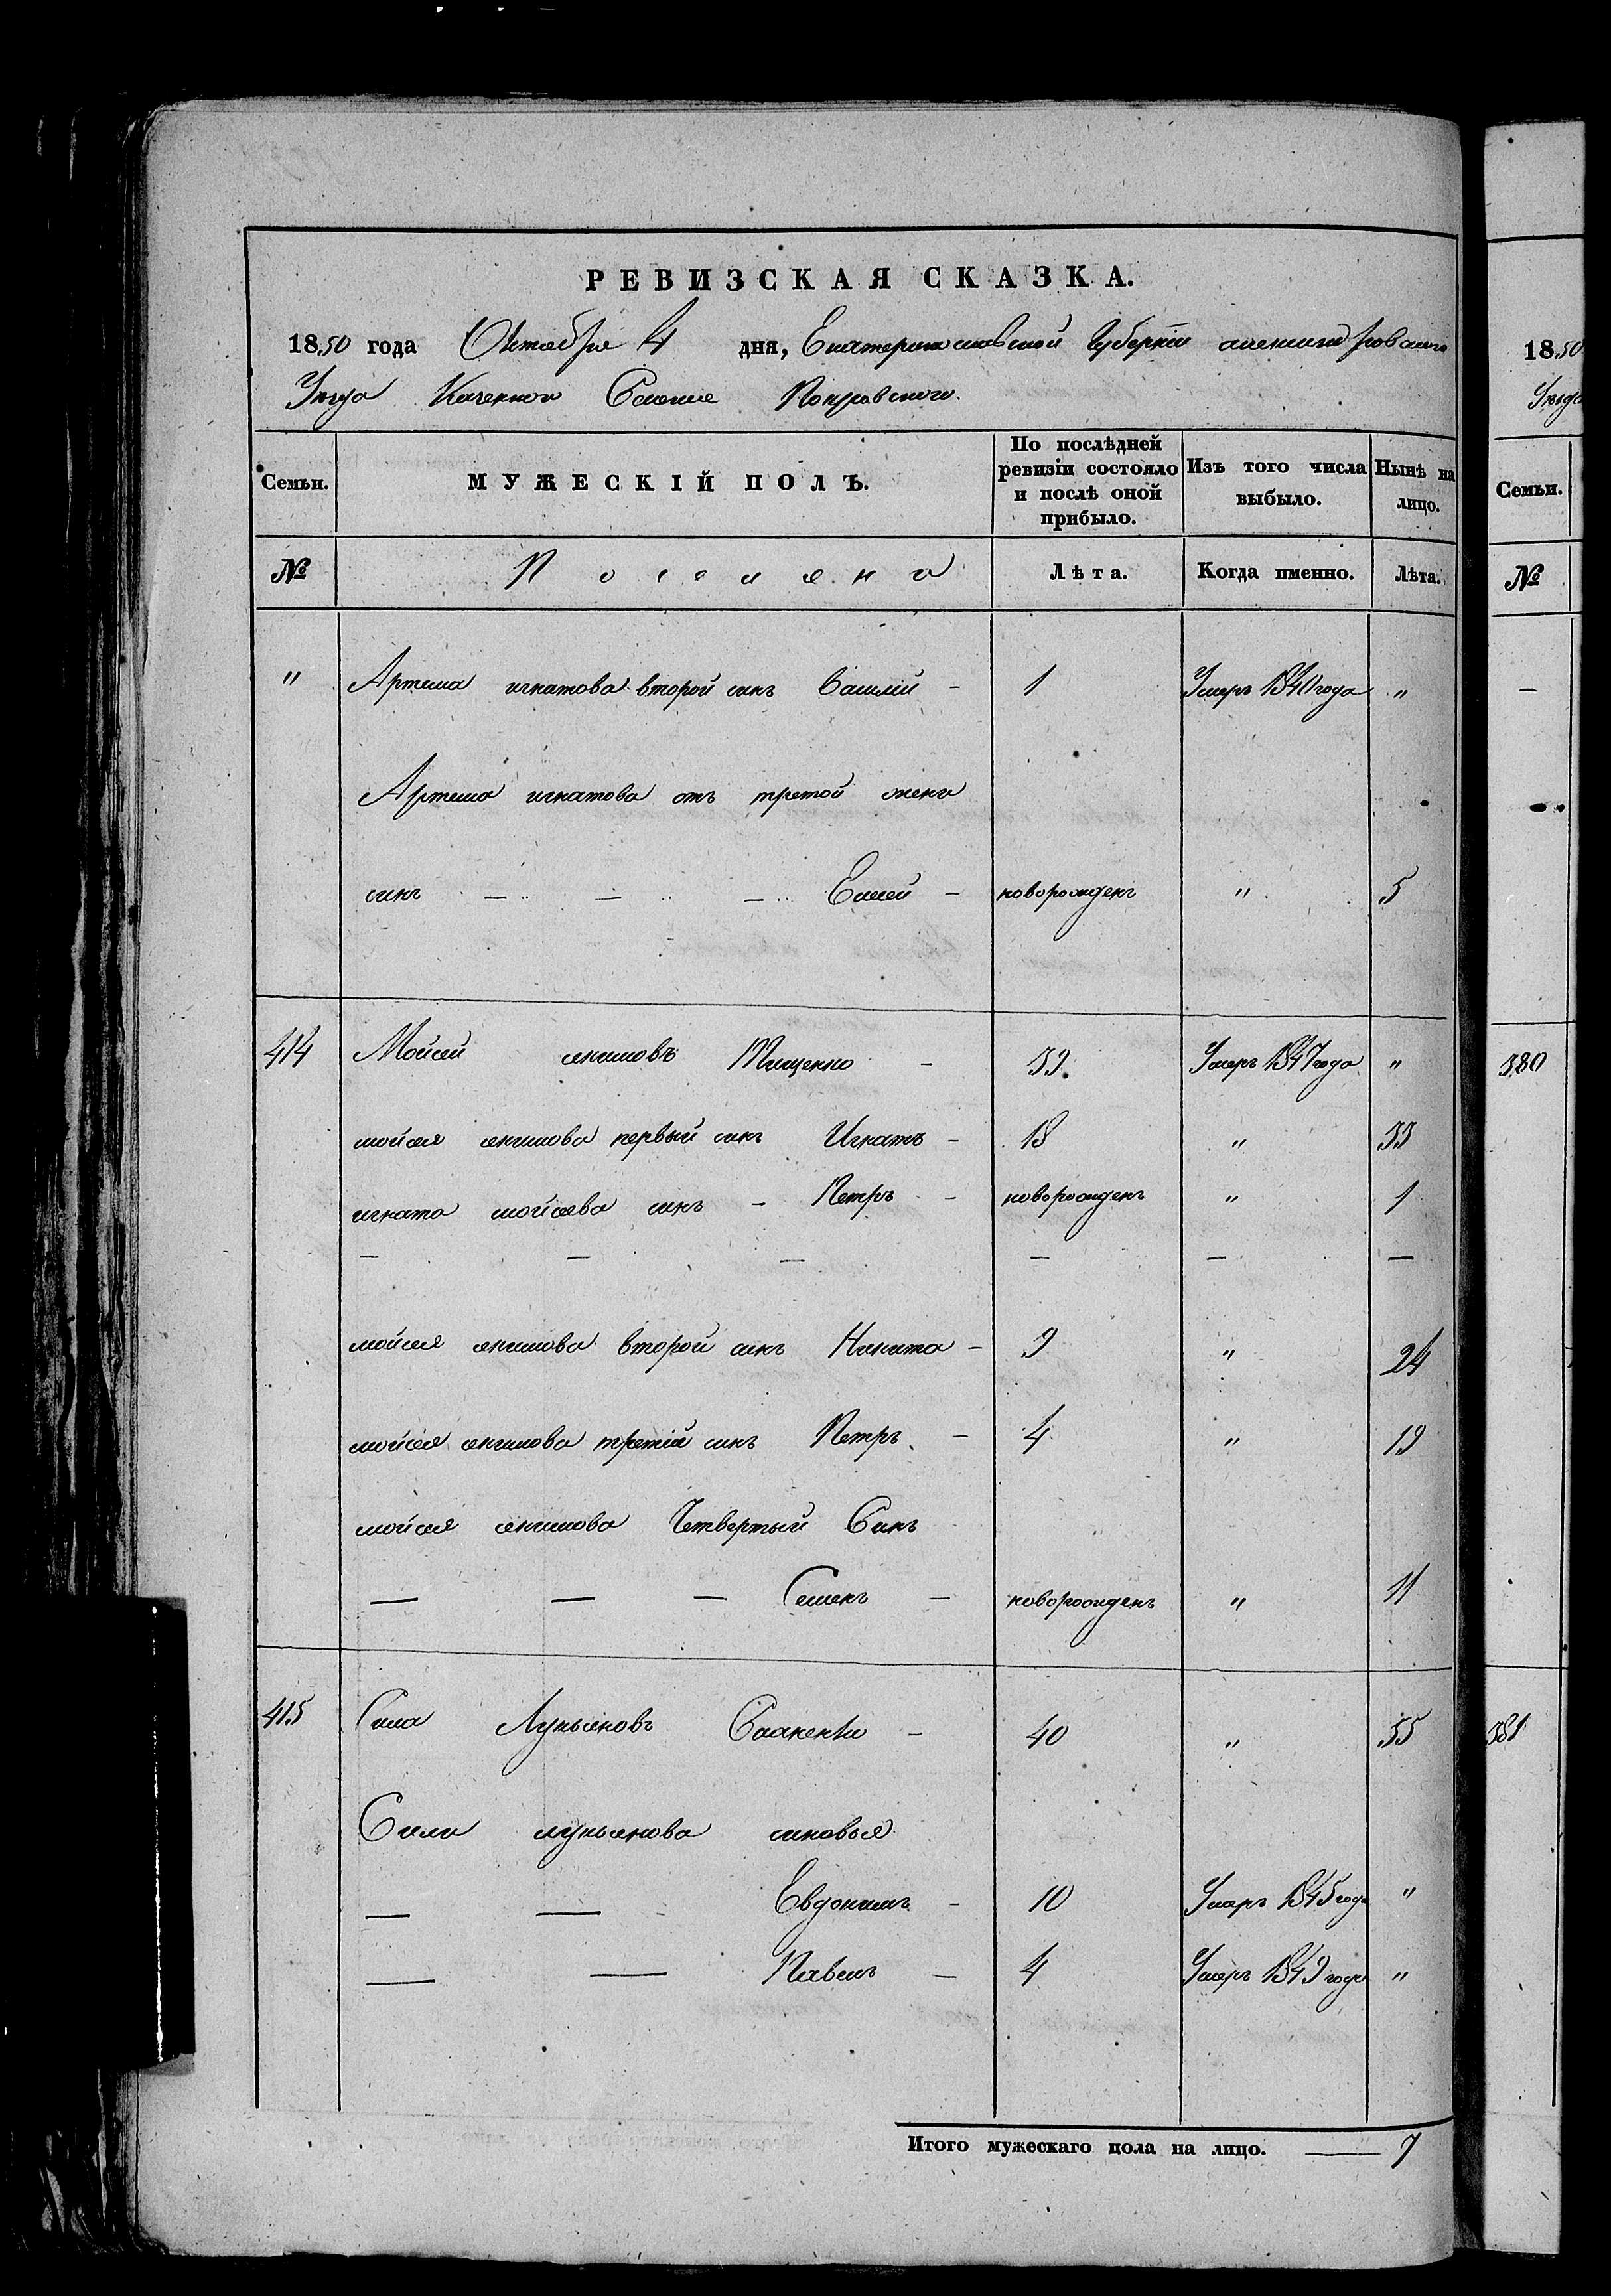 РЕВИЗСКАЯ СКАЗКА.
1850 года Октября 4 дня, Екатеринославской Губернїи александровского
Уезда Казенного Селение Покровского.
Семьи. МУЖЕСКІЙ ПОЛЪ. По послѣдней ревизіи состояло и послѣ оной прибыло. Изъ того числа выбыло. Нынѣ на лицо.
№ Лѣта. Когда именно. Лѣта.
" Артема игнатова второй синъ Василій - 1 Умеръ 1840 года "
Артема игнатова отъ третой жени
синъ — — — Елисей - новорожденъ " 5
414 Мойсей екимовъ Тищенко - 39 Умеръ 1847 года "
мойсея екимова первый синъ Игнатъ - 18 " 33
игната мойсеева синъ - Петръ - новорожденъ " 1
— — — — — —
мойсея екимова второй синъ Никита - 9 " 24
мойсея екимова третій синъ Петръ - 4 " 19
мойсея екимова Четвертый Синъ
— — — Семенъ - новорожденъ " 11
415 Сила Лукьяновъ - 40 " 55
Сили лукьянова синовья
— — - Евдокимъ - 10 Умеръ 1845 года "
— — Павелъ — 4 Умеръ 1849 года "
Итого мужескаго пола на лицо. — 7
1850
Уезда
Семьи.
№
—
380
381